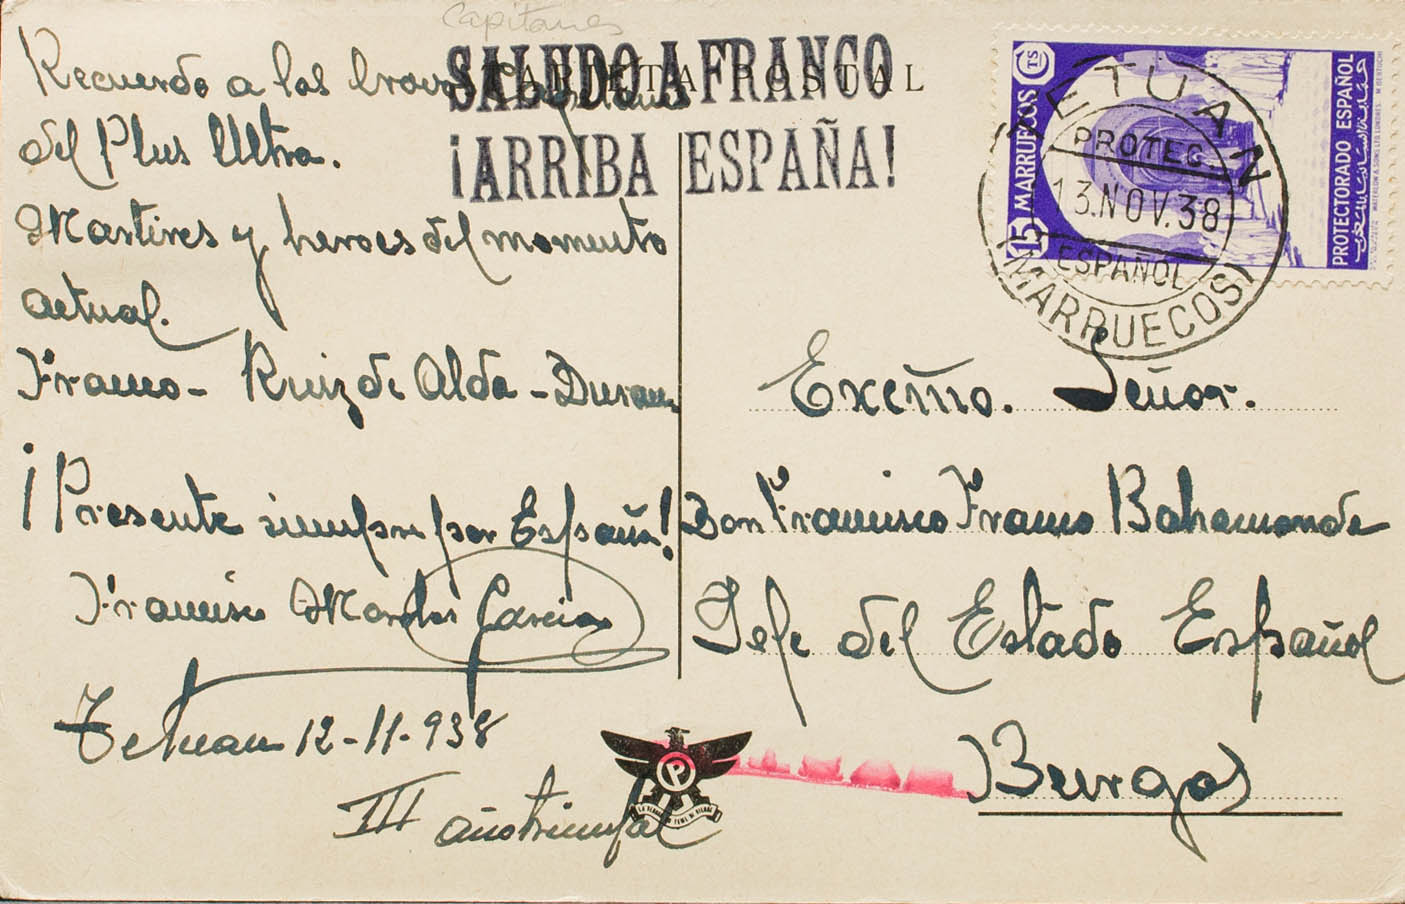 Capitanes
Recuerdo a los bravos Capitanes
del Plus Ultra.
Martires y heroes del momento
actual.
Franco - Ruiz de Alda - Duran
¡Presente siempre por España!
Francisco Morales Garcia
Tetuan 12-11-938
III año triunfal
TARJETA POSTAL
SALUDO A FRANCO
¡ARRIBA ESPAÑA!
15 CTS MARRUECOS
PROTECTORADO ESPAÑOL
TETUAN
PROTEC
13.NOV.38
ESPAÑOL
(MARRUECOS)
Excmo. Señor.
Don Francisco Franco Bahamonde
Jefe del Estado Español
Burgos
P